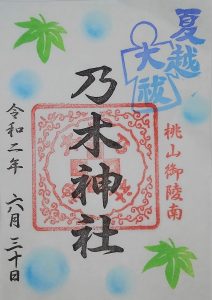 夏越
大祓
桃山御陵南
乃木神社
令和二年 六月三十日